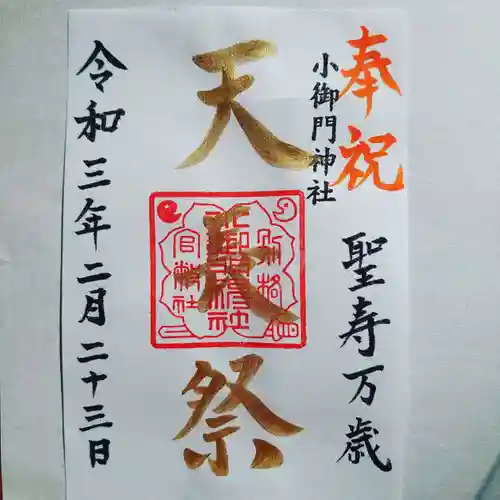 奉祝
聖寿万歳
小御門神社
天長祭
別格
小御門神社
官幣社
令和三年二月二十三日